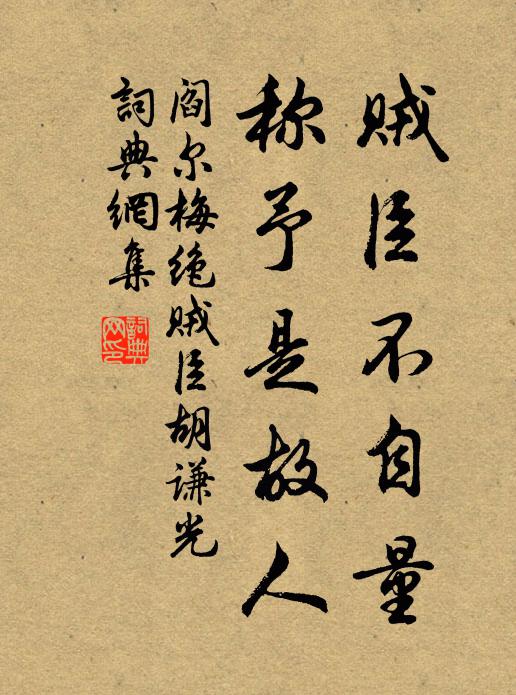 贼臣不自量
称予是故人
阎尔梅绝贼臣胡谦光
詞典網集
詞典网印